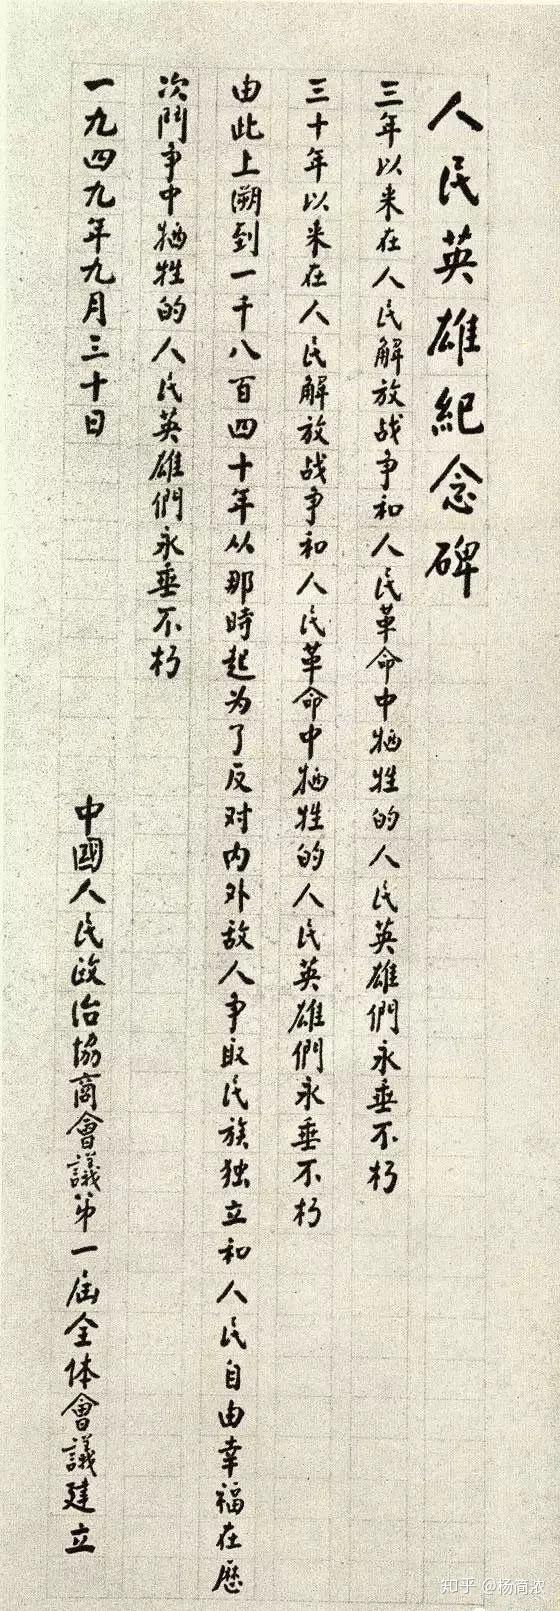 人民英雄紀念碑
三年以来在人民解放战争和人民革命中牺牲的人民英雄們永垂不朽
三十年以来在人民解放战争和人民革命中牺牲的人民英雄們永垂不朽
由此上溯到一千八百四十年从那時起为了反对内外敌人争取民族独立和人民自由幸福在歷
次鬥争中牺牲的人民英雄們永垂不朽
一九四九年九月三十日
中國人民政治協商會議第一屆全体會議建立
知乎 @杨简浓